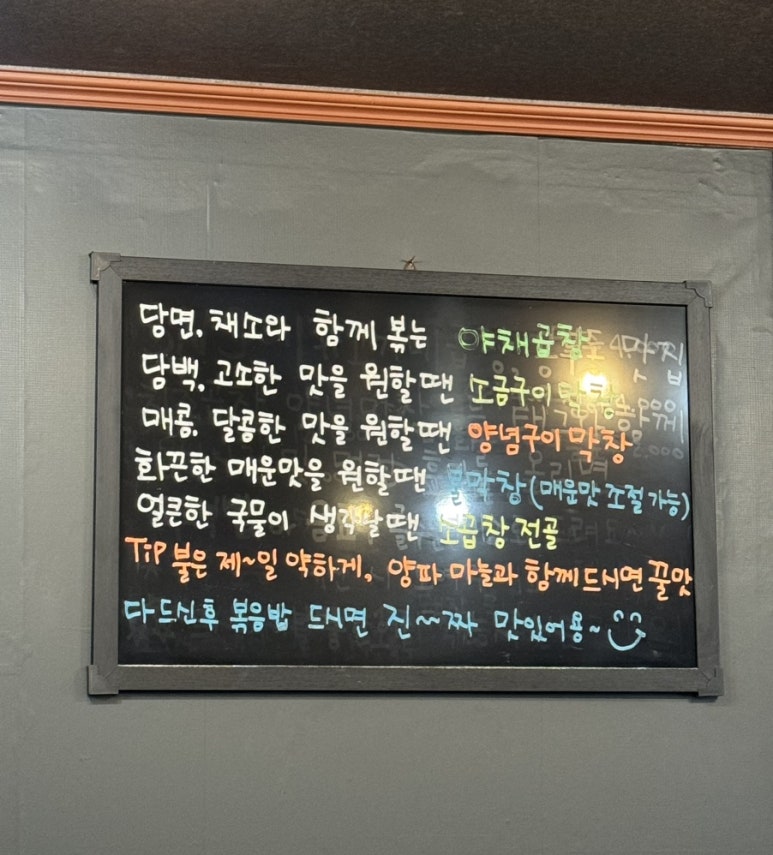 당면, 채소와 함께 볶는 야채곱창
담백, 고소한 맛을 원할땐 소금구이
매콤, 달콤한 맛을 원할땐 양념구이 막창
화끈한 매운맛을 원할땐 불막창 (매운맛 조절 가능)
얼큰한 국물이 생각날땐 전골
TiP 불은 제~일 약하게, 양파 마늘과 함께 드시면 꿀맛
다 드신후 볶음밥 드시면 진~짜 맛있어용~